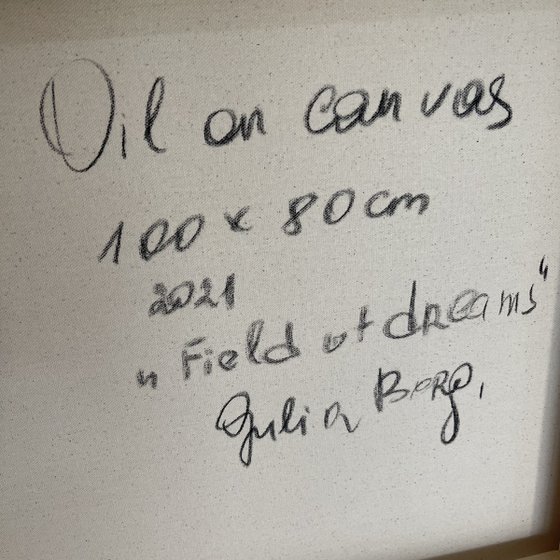 Oil on canvas
100 x 80 cm
2021
„Field of dreams“
Julia Berg,